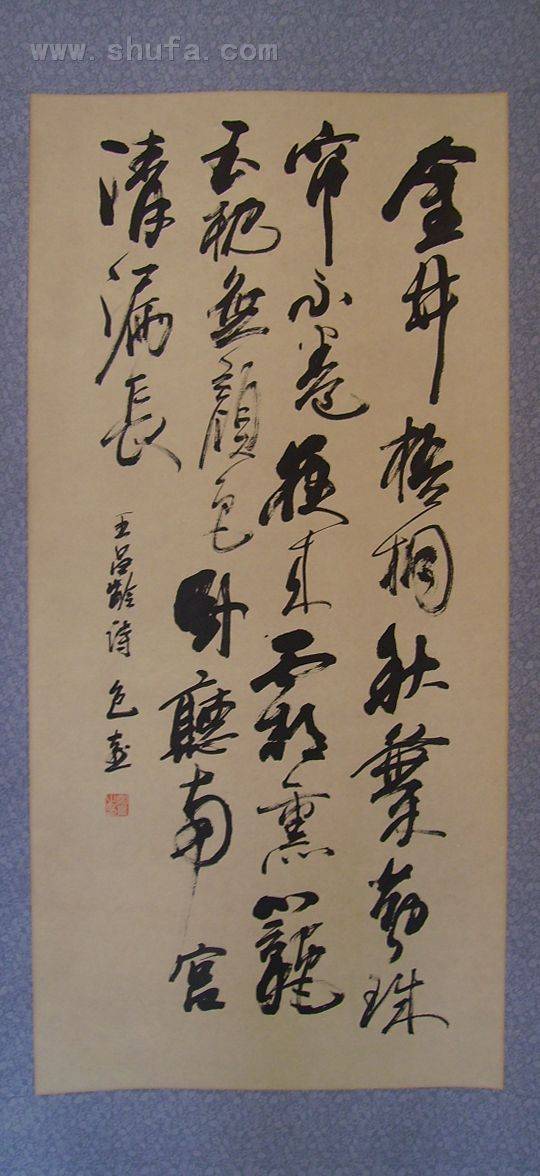 www.shufa.com
金井梧桐秋葉黄珠
帘不卷夜来霜熏籠
玉枕無顔色卧聽南宫
清漏長
王昌齡詩